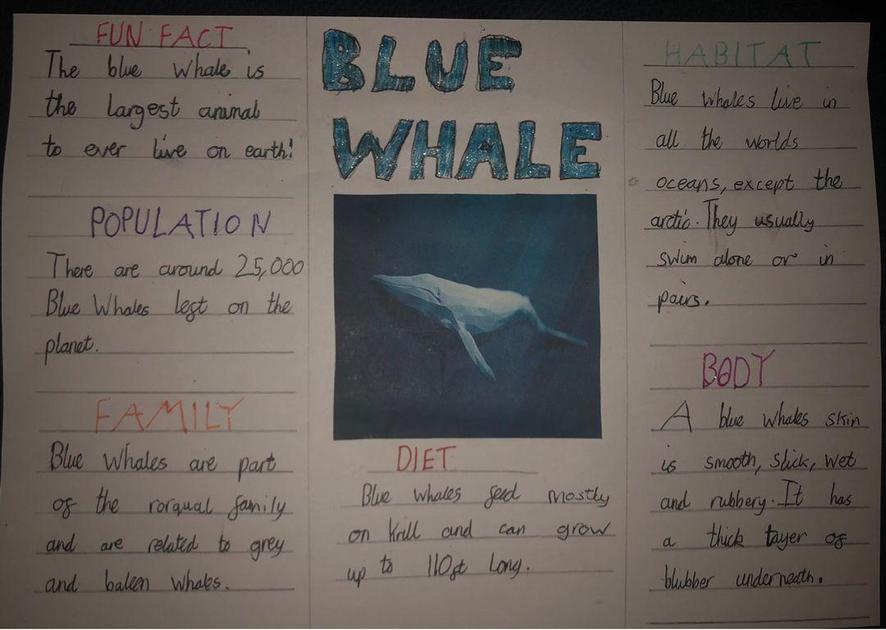 FUN FACT
The blue whale is
the largest animal
to ever live on earth!
POPULATION
There are around 25,000
Blue Whales left on the
planet.
FAMILY
Blue Whales are part
of the rorqual family
and are related to grey
and baleen whales.
BLUE
WHALE
DIET
Blue whales feed mostly
on krill and can grow
up to 110ft long.
HABITAT
Blue whales live in
all the worlds
oceans, except the
arctic. They usually
swim alone or in
pairs.
BODY
A blue whales skin
is smooth, slick, wet
and rubbery. It has
a thick layer of
blubber underneath.